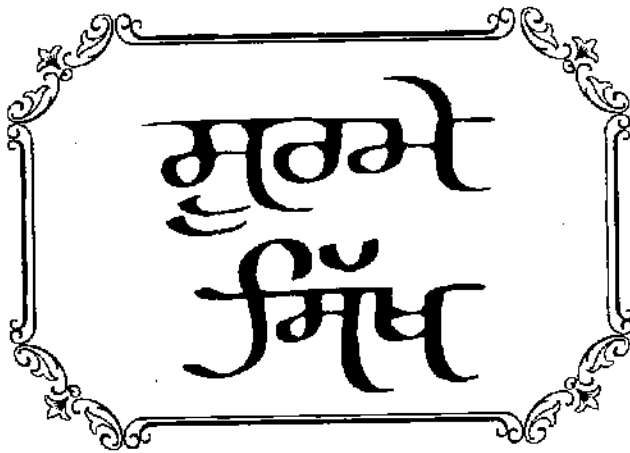 ਸੂਰਮੇ
ਸਿੱਖ